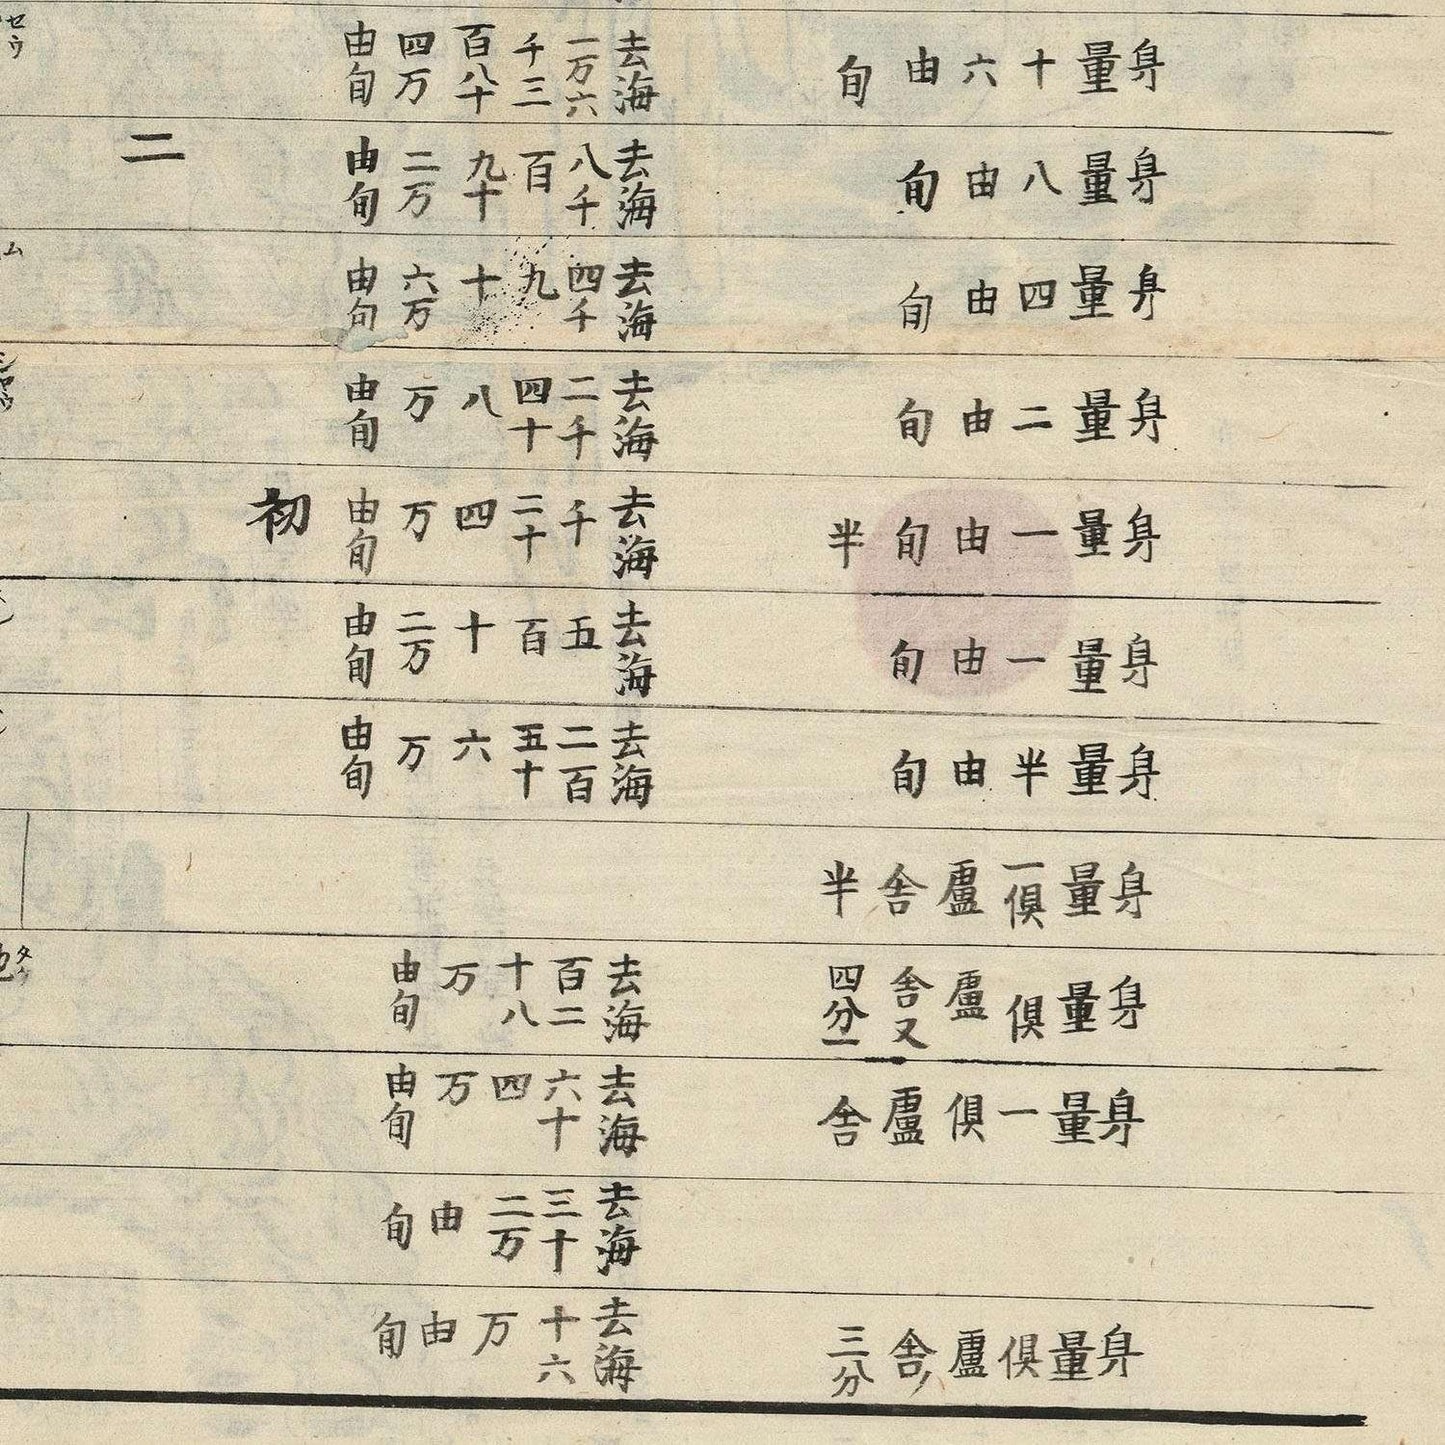 身量十六由旬
去海一万六千三百八十四万由旬
セウ
身量八由旬
去海八千百九十二万由旬
二
身量四由旬
去海四千九十六万由旬
ム
身量二由旬
去海二千四十八万由旬
身量一由旬半
去海千二十四万由旬
初
身量一由旬
去海五百十二万由旬
身量半由旬
去海二百五十六万由旬
身量一倶盧舎半
身量倶盧舎又四分一
去海百二十八万由旬
タウ
身量一倶盧舎
去海六十四万由旬
去海三十二万由旬
身量倶盧舎ノ三分
去海十六万由旬